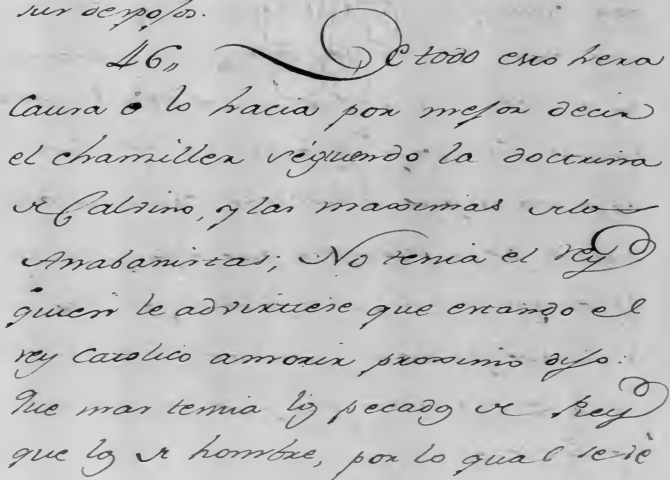 sus despojos.
46,, De todo esto hera
Causa ó lo hacia por mejor decir
el chanziller siguiendo la doctrina
de Calvino, y las maximas de los
Anabanistas; No tenia el rey
quien le advirtiese que estando el
rey Catolico a morir proximo dijo:
Que mas temia los pecados de Rey
que los de hombre, por lo qual se vè